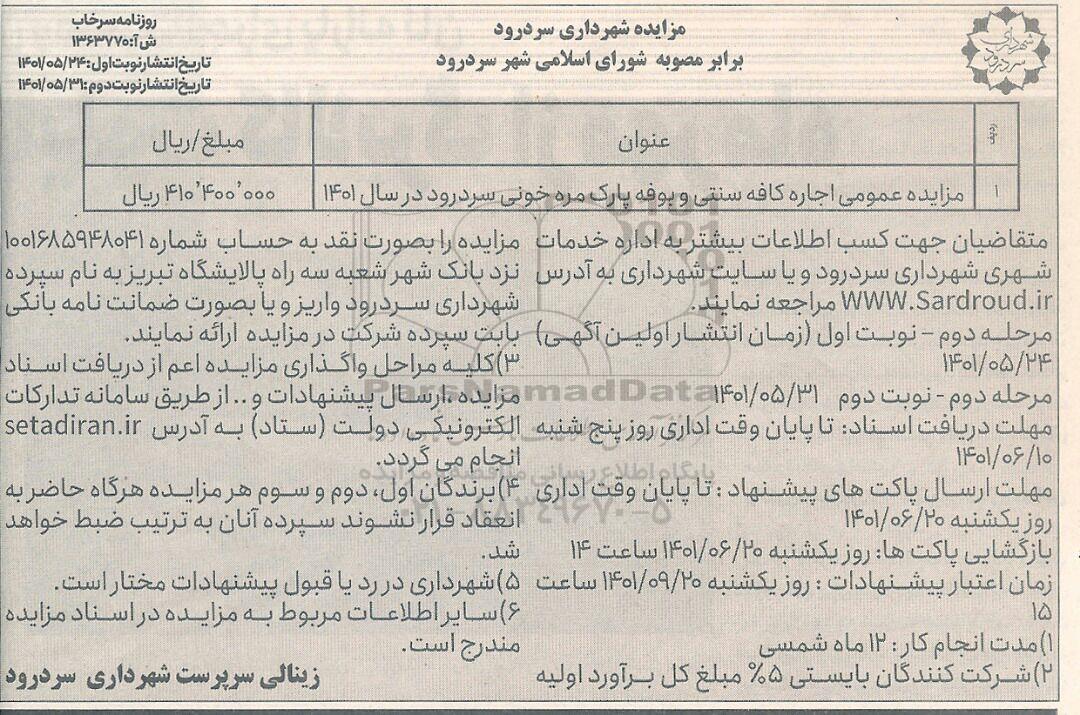 روزنامه سرخاب
ش آ: ۱۳۶۳۷۷۰
تاریخ انتشار نوبت اول: ۱۴۰۱/۰۵/۲۴
تاریخ انتشار نوبت دوم: ۱۴۰۱/۰۵/۳۱
مزایده شهرداری سردرود
برابر مصوبه شورای اسلامی شهر سردرود
شهرداری
سردرود
ردیف عنوان مبلغ/ریال
۱ مزایده عمومی اجاره کافه سنتی و بوفه پارک مره خونی سردرود در سال ۱۴۰۱ ۴۱۰٬۴۰۰٬۰۰۰ ریال
متقاضیان جهت کسب اطلاعات بیشتر به اداره خدمات
شهری شهرداری سردرود و یا سایت شهرداری به آدرس
WWW.Sardroud.ir مراجعه نمایند.
مرحله دوم – نوبت اول (زمان انتشار اولین آگهی)
۱۴۰۱/۰۵/۲۴
مرحله دوم - نوبت دوم ۱۴۰۱/۰۵/۳۱
مهلت دریافت اسناد: تا پایان وقت اداری روز پنج شنبه
۱۴۰۱/۰۶/۱۰
مهلت ارسال پاکت های پیشنهاد : تا پایان وقت اداری
روز یکشنبه ۱۴۰۱/۰۶/۲۰
بازگشایی پاکت ها: روز یکشنبه ۱۴۰۱/۰۶/۲۰ ساعت ۱۴
زمان اعتبار پیشنهادات : روز یکشنبه ۱۴۰۱/۰۹/۲۰ ساعت
۱۵
۱)مدت انجام کار: ۱۲ ماه شمسی
۲)شرکت کنندگان بایستی ۵% مبلغ کل برآورد اولیه
مزایده را بصورت نقد به حساب شماره ۱۰۰۱۶۸۵۹۴۸۰۴۱
نزد بانک شهر شعبه سه راه پالایشگاه تبریز به نام سپرده
شهرداری سردرود واریز و یا بصورت ضمانت نامه بانکی
بابت سپرده شرکت در مزایده ارائه نمایند.
۳)کلیه مراحل واگذاری مزایده اعم از دریافت اسناد
مزایده ،ارسال پیشنهادات و .. از طریق سامانه تدارکات
الکترونیکی دولت (ستاد) به آدرس setadiran.ir
انجام می گردد.
۴)برندگان اول، دوم و سوم هر مزایده هرگاه حاضر به
انعقاد قرار نشوند سپرده آنان به ترتیب ضبط خواهد
شد.
۵)شهرداری در رد یا قبول پیشنهادات مختار است.
۶)سایر اطلاعات مربوط به مزایده در اسناد مزایده
مندرج است.
زینالی سرپرست شهرداری سردرود
ParsNamadData
پایگاه اطلاع رسانی مناقصه و مزایده
۰۲۱-۸۸۳۴۹۶۷۰-۵